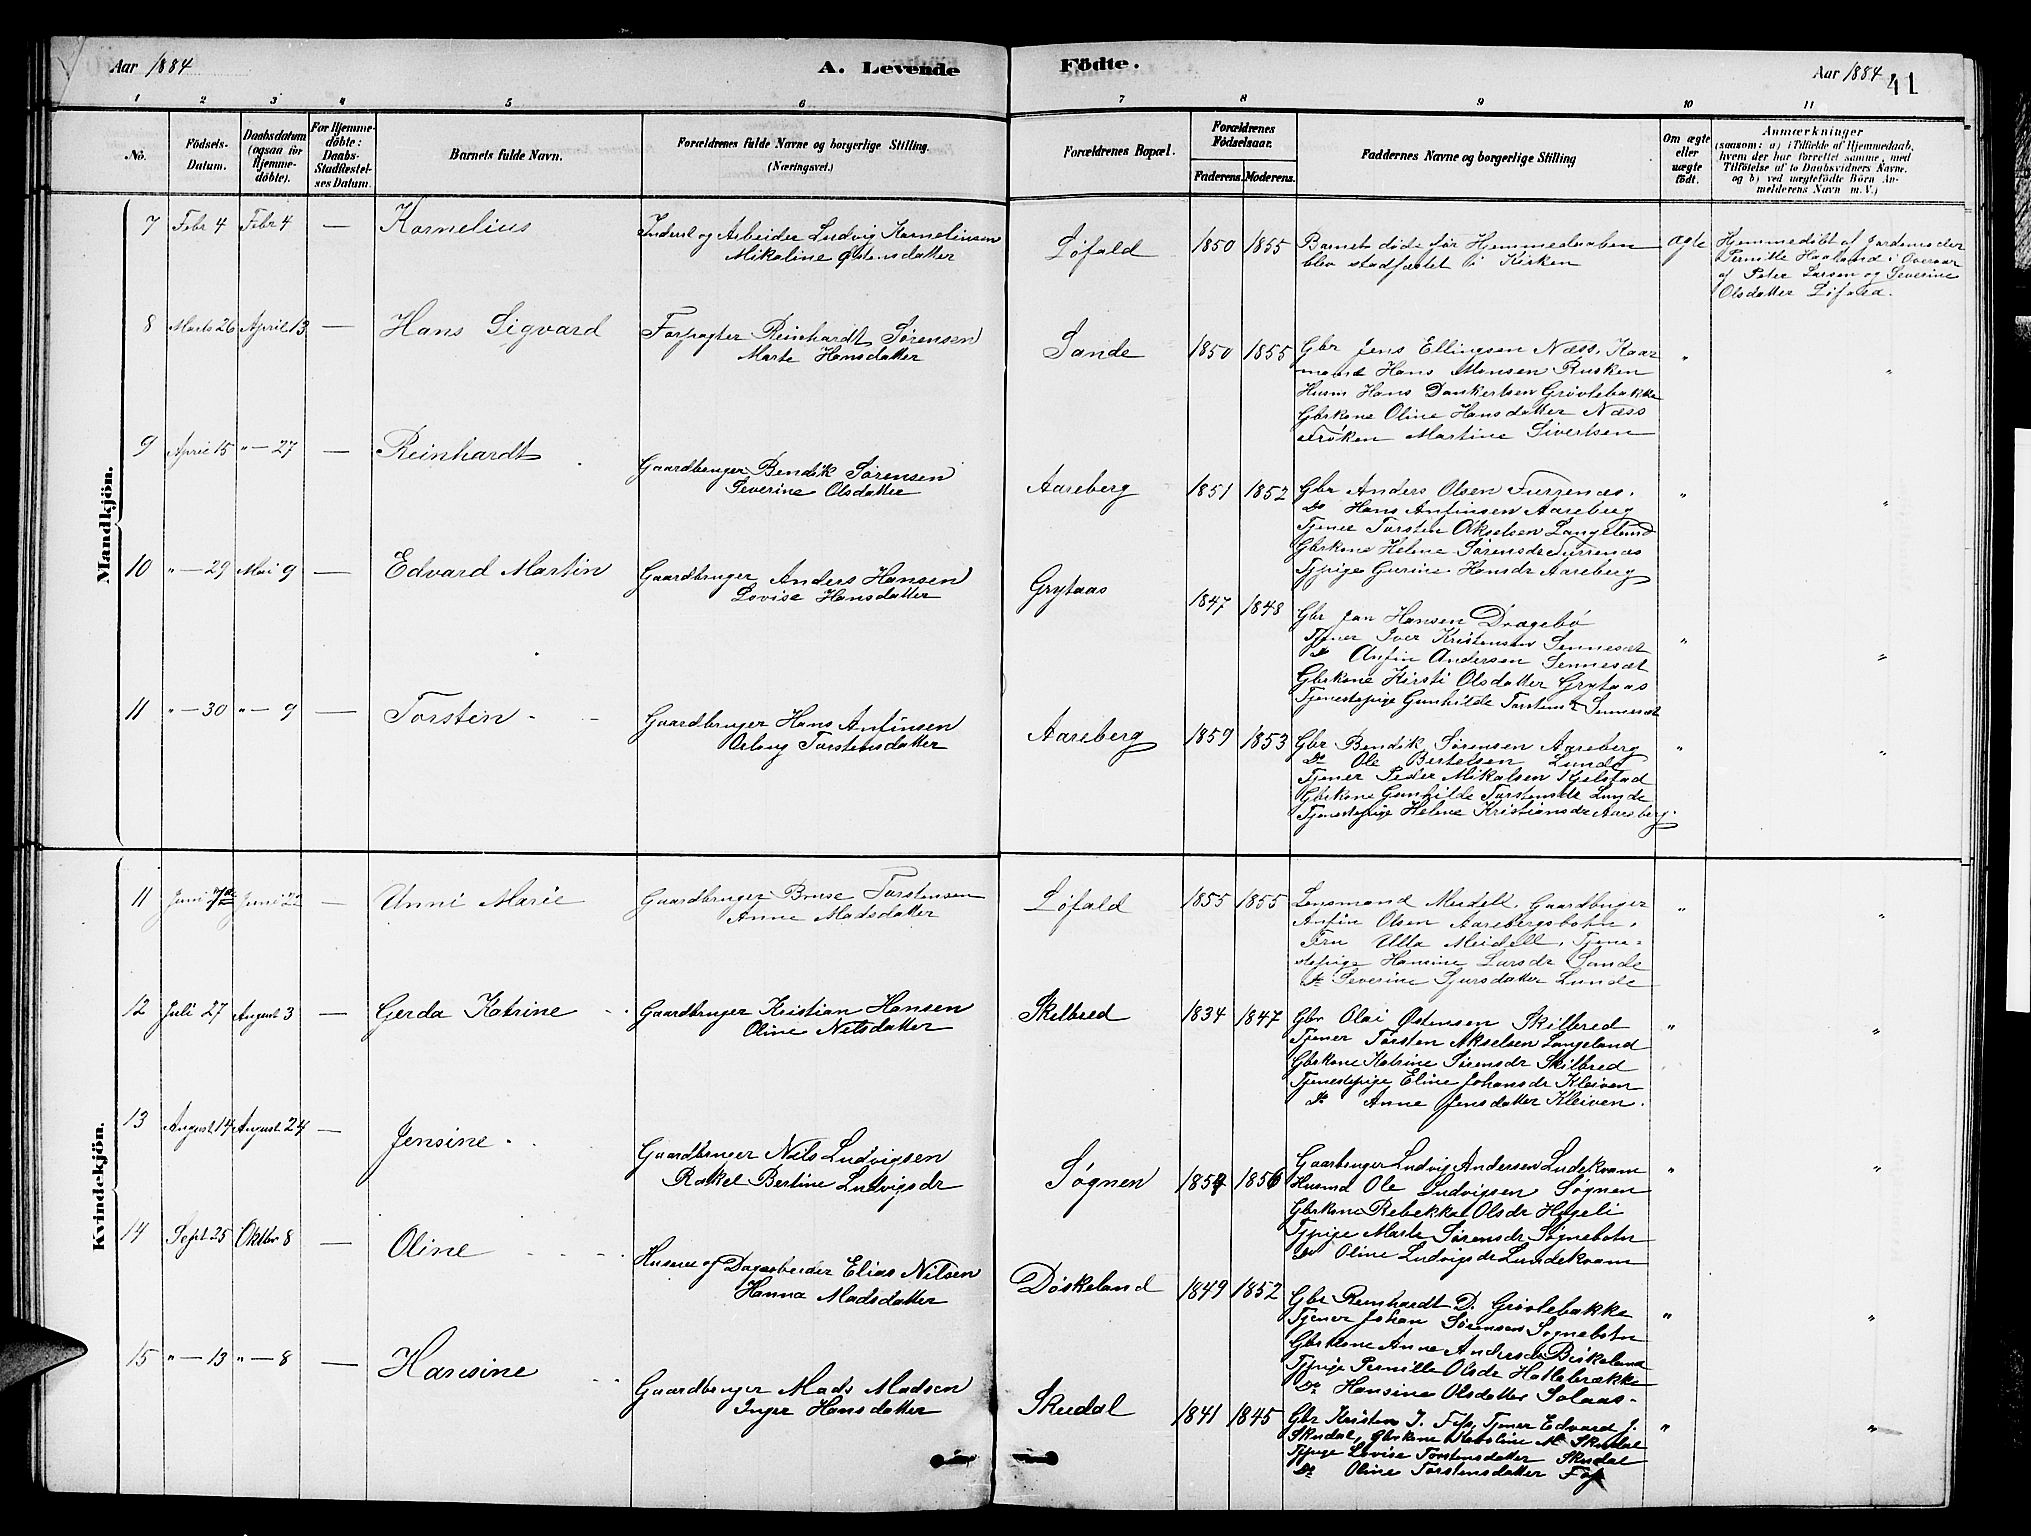 Aar 1884
A. Levende
Födte.
Aar 1884
41
1 2 3 4 5 6 7 8 9 10 11
No.
Födsels-
Datum.
Daabsdatum
(ogsaa for
Hjemme-
döbte).
For Hjemme-
döbte:
Daabs-
Stadfæstel-
ses Datum.
Barnets fulde Navn.
Forældrenes fulde Navne og borgerlige Stilling.
(Næringsvei.)
Forældrenes Bopæl.
Forældrenes
Födselsaar.
Faderens. Moderens.
Faddernes Navne og borgerlige Stilling
Om ægte
eller
uægte
födt.
Anmærkninger
(saasom: a) i Tilfælde af Hjemmedaab,
hvem der har forrettet samme, med
Tilföielse af to Daabsvidners Navne,
og b) ved uægtefödte Börn An-
melderens Navn m. V.)
Mandkjön.
7 Febr 4 Febr 4 — Kornelius
Inderst og Arbeider Ludvig Kornelinsen
Mikaline Østensdatter
Løfald 1850 1855
Barnets døde før Hjemmedaaben
blev stadfæstet i Kirken
ægte
Hjemmedøbt af Jordemoder
Pernille Haaland i Overvær
af Peter Larsen og Severine
Olsdatter Løfald.
8 Marts 26 April 13 — Hans Sigvard
Forpagter Reinhardt Sørensen
Marte Hansdatter
Sande 1850 1855
Gbr Jens Ellingsen Næss, Kaar
mand Hans Monsen Rusken
Husm Hans Dankertsen Grøvlebakke
Gbrkone Oline Hansdatter Næss
Frøken Martine Sivertsen
" "
9 April 15 " — 27 — Reinhardt
Gaardbruger Bendik Sørensen
Severine Olsdatter
Aareberg 1851 1852
Gbr Anders Olsen Furrenæs.
Do Hans Anfinsen Aareberg
Tjener Torsten Akselsen Langeland
Gbrkone Helene Sørensdr Furrenæs
Tjpige Gurine Hansdr Aareberg
" "
10 " — 29 Mai 9 — Edvard Martin
Gaardbruger Anders Hansen
Lovise Hansdatter
Grytaas 1847 1848
Gbr Jan Hansen Drægebø
Tjener Iver Kristensen Sennesæt
Do Anfin Andersen Sennesæt
Gbrkone Kirsti Olsdatter Grytaas
Tjenestepige Gunhilde Torstensdr Sennesæt
" "
11 " — 30 " — 9 — Torsten
Gaardbruger Hans Anfinsen
Torstensdatter
Aareberg 1859 1853
Gbr Bendik Sørensen Aareberg
Do Ole Bertelsen Lunde
Tjener Peder Mikalsen Gjelstad
Gbrkone Gunhilde Torstensdr Lunde
Tjenestepige Helene Kristiansdr Aareberg.
" "
Kvindekjön.
11 Juni Juni 22 — Unni Marie
Gaardbruger Bruse Torstensen
Anne Madsdatter
Løfald 1855 1855
Lensmand Meidell, Gaardbruger
Anfin Olsen Aarebergsbotn,
Fru Ulla Meidell, Tjene-
stepige Hansine Larsdr Sande
Do Severine Sjursdatter Lunde
" "
12 Juli 27 August 3 — Gerda Katrine
Gaardbruger Kristian Hansen
Oline Nilsdatter
Skilbred 1834 1847
Gbr Olai Østensen Skilbred
Tjener Torsten Akselsen Langeland
Gbrkone Katrine Sørensdr Skilbred
Tjenestepige Eline Johansdr Kleiven
Do Anne Jensdatter Kleiven.
" "
13 August 14 August 24 — Jensine
Gaardbruger Nils Ludvigsen
Rakel Bertine Ludvigsdr
Søgnen 1854 1856
Gaarbruger Ludvig Andersen Ludekvam
Husmd Ole Ludvigsen Søgnen
Gbrkone Rebekka Olsdr Hageli
Tjpige Marte Sørensdr Søgnebotn
Do Oline Ludvigsdr Lundekvam
" "
14 Sept 25 Oktbr 8 — Oline
Husmd og Dagarbeider Elias Nilsen
Hanna Madsdatter
Døskeland 1849 1852
Gbr Reinhardt D. Grøvlebakke
Tjener Johan Sørensen Sognebotn
Gbrkone Anne Andersdr Døskeland
Tjpige Pernille Olsdr Hatlebrække
Do Hansine Olsdatter Solaas
" "
15 " — 13 " — 8 — Hansine
Gaardbruger Mads Madsen
Inger Hansdatter
Skudal 1841 1845
Gbr Kristen J. Fos, Tjener Edvard J.
Skudal, Gbrkone Karoline M. Skudal
Tjpige Lovise Torstensdatter Skudal
Do Oline Torstensdatter Fos
" "